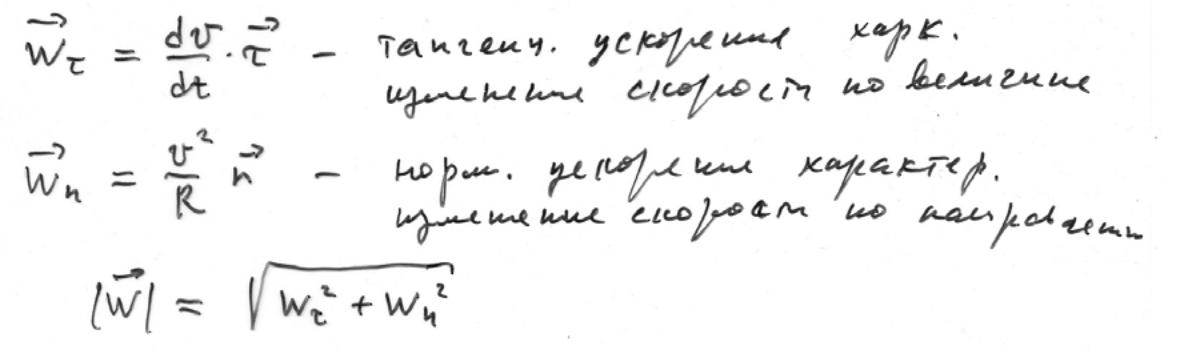 w⃗_τ = dv/dt · τ⃗ – танген. ускорения харк.
изменение скорости по величине
w⃗_n = v²/R n⃗ – норм. ускорение характер.
изменение скорости по направлению
|w⃗| = √(w_τ² + w_n²)